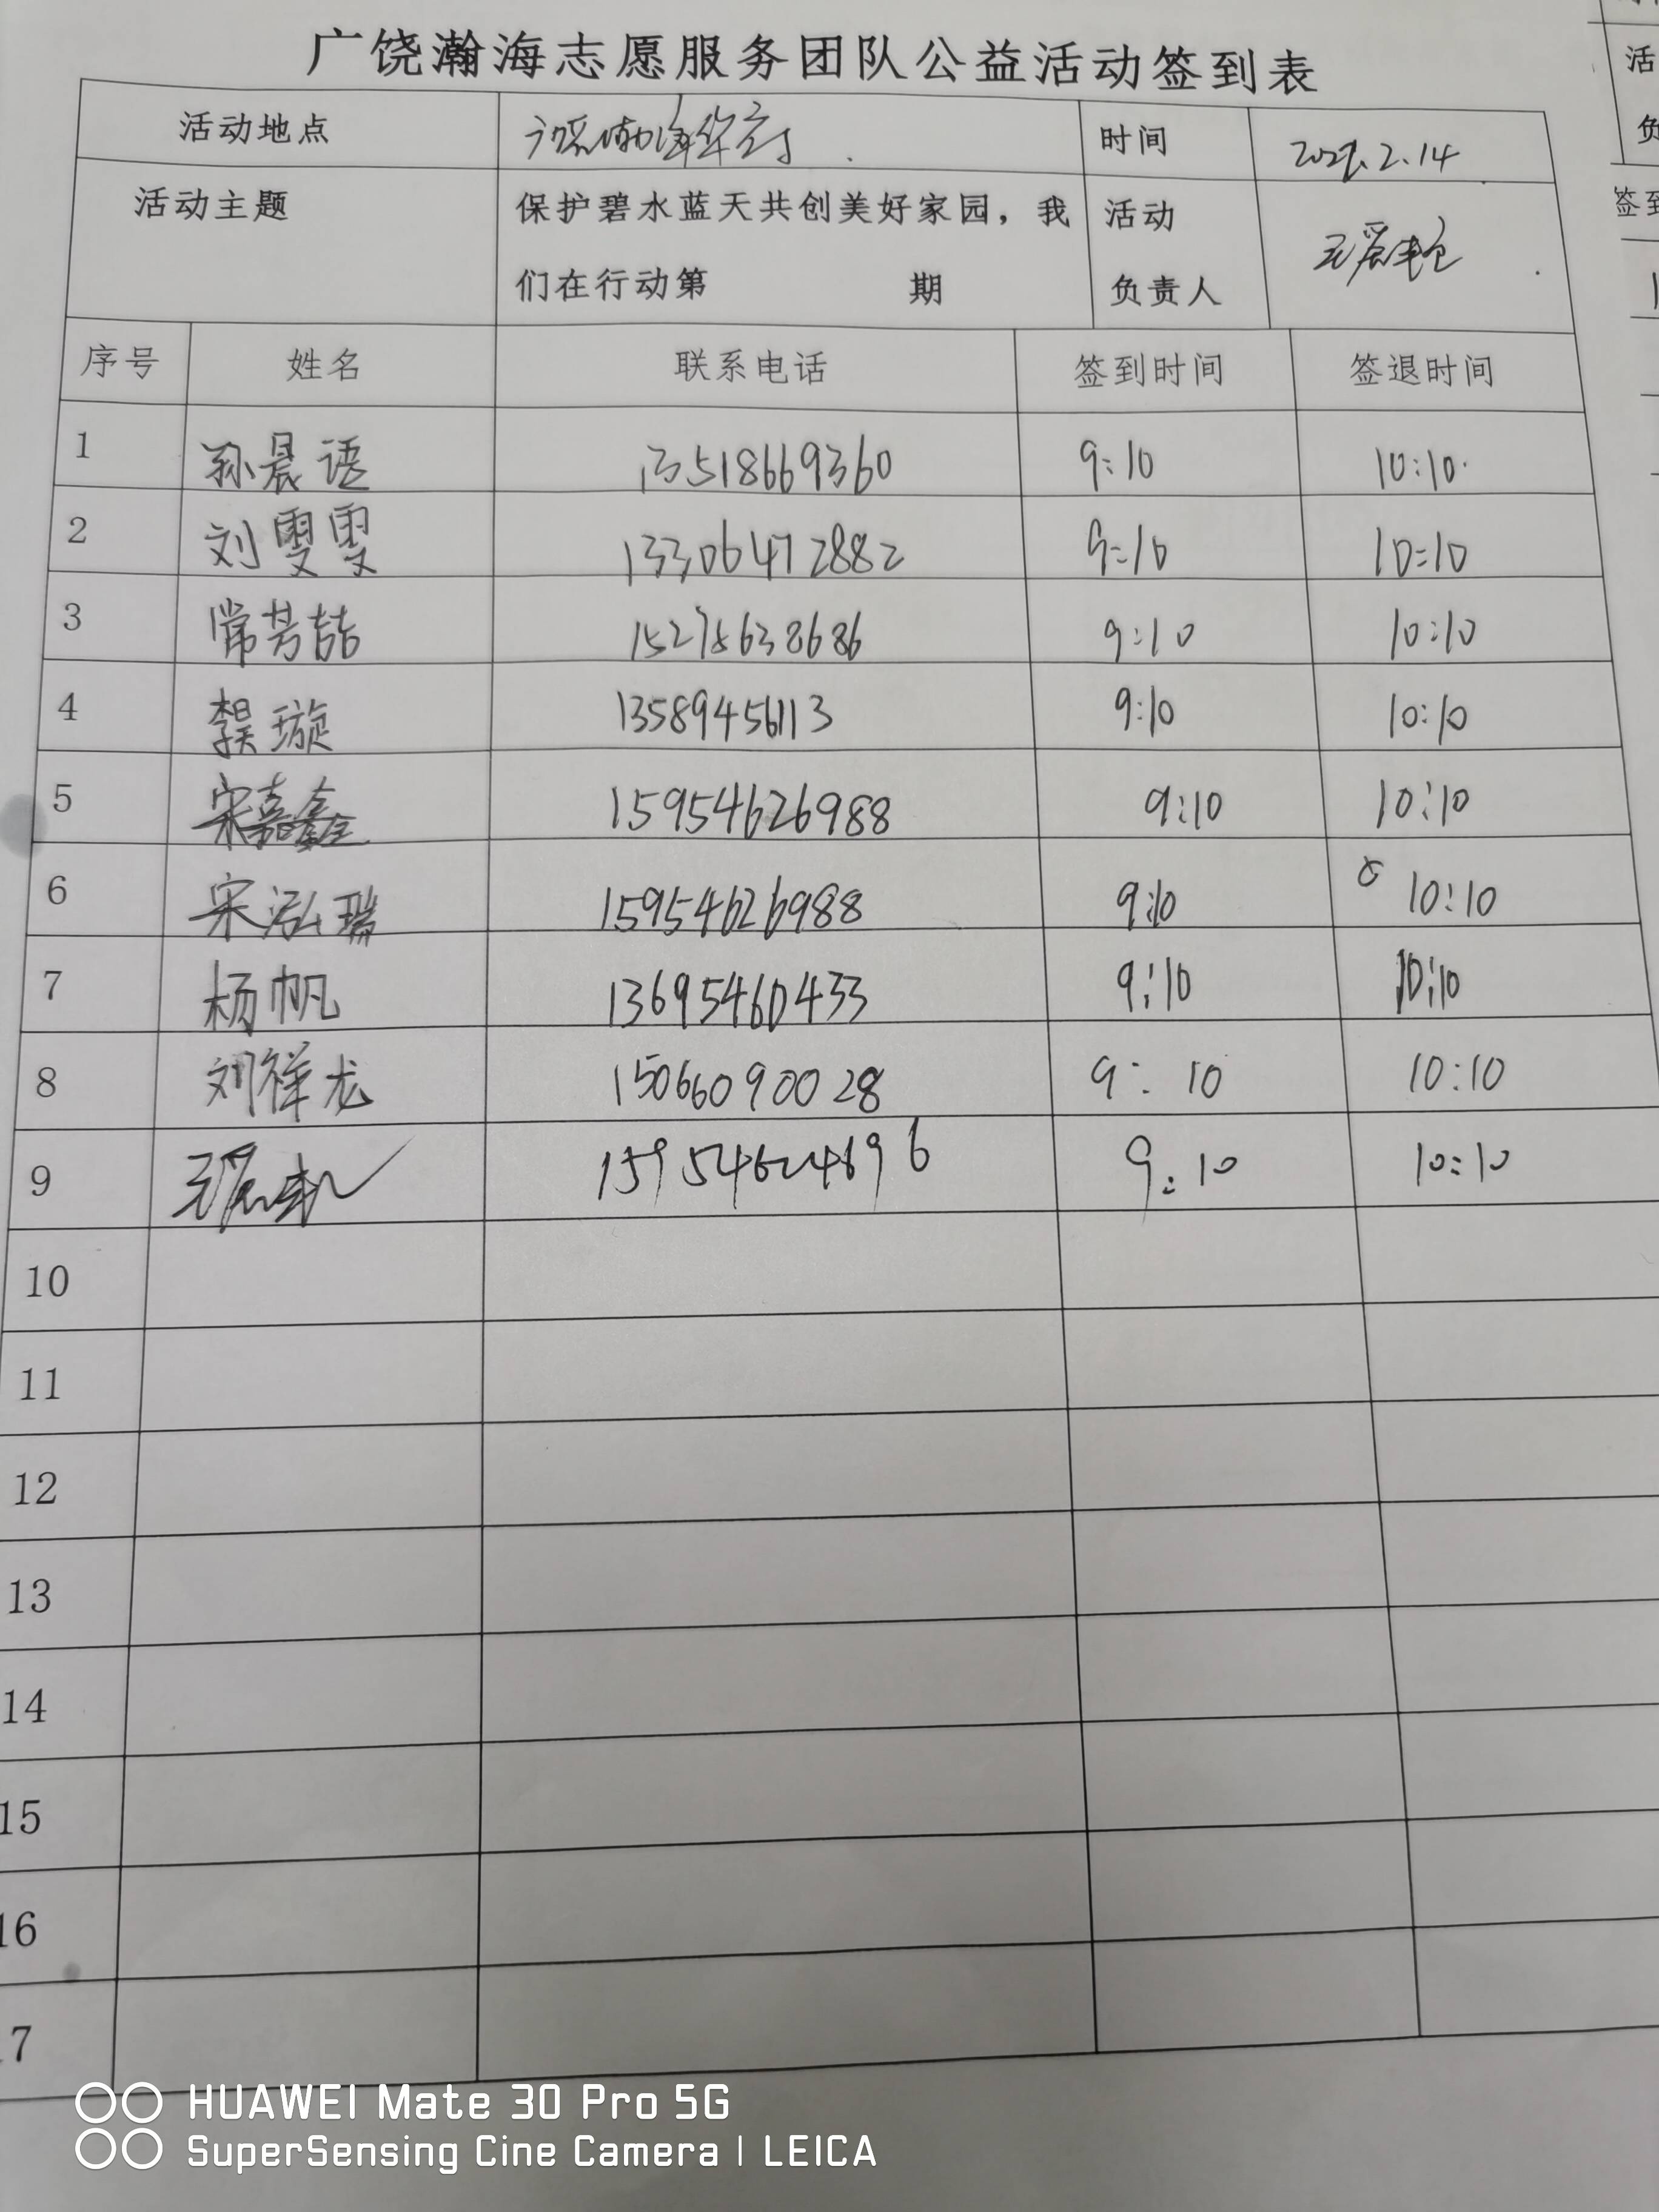 广饶瀚海志愿服务团队公益活动签到表
活动地点 渤海华府 时间 2022.2.14
活动主题 保护碧水蓝天共创美好家园，我 活动
们在行动第 期 负责人
序号 姓名 联系电话 签到时间 签退时间
1 孙晨语 13518669360 9:10 10:10
2 刘雯雯 13306472882 9:10 10:10
3 常芳喆 15275638686 9:10 10:10
4 璇 13589456113 9:10 10:10
5 宋嘉鑫 15954626988 9:10 10:10
6 宋泓瑞 15954626988 9:10 10:10
7 杨帆 13695460433 9:10 10:10
8 刘祥龙 15066090028 9:10 10:10
9 15954624696 9:10 10:10
10
11
12
13
14
15
16
17
HUAWEI Mate 30 Pro 5G
SuperSensing Cine Camera | LEICA
活
负
签到